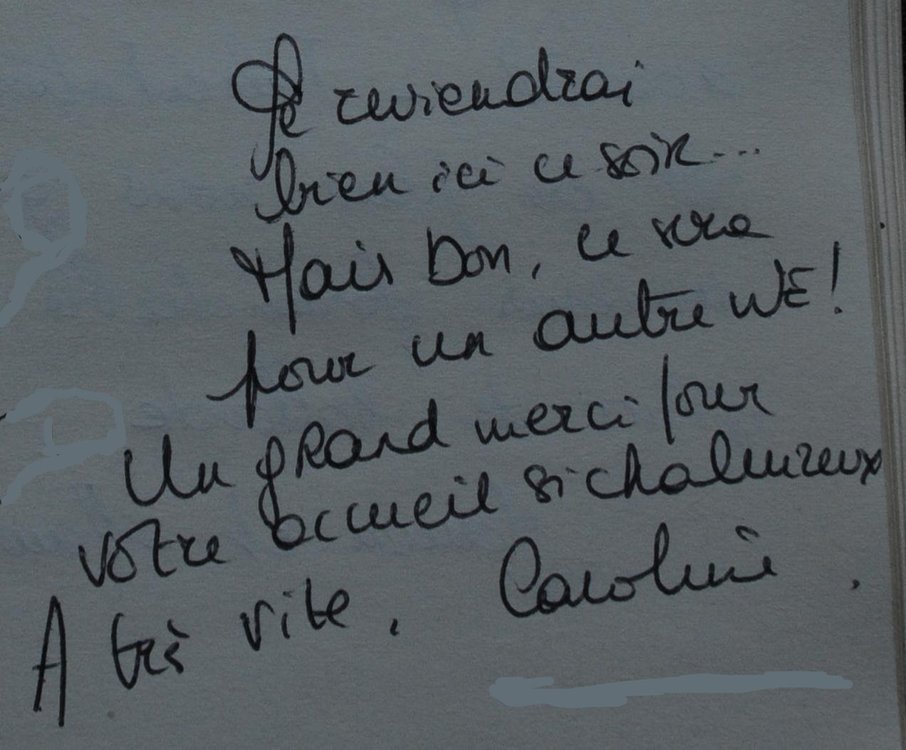 Je reviendrai
bien ici ce soir...
Mais bon, ce sera
pour un autre WE!
Un grand merci pour
votre accueil si chaleureux
A très vite, Caroline.